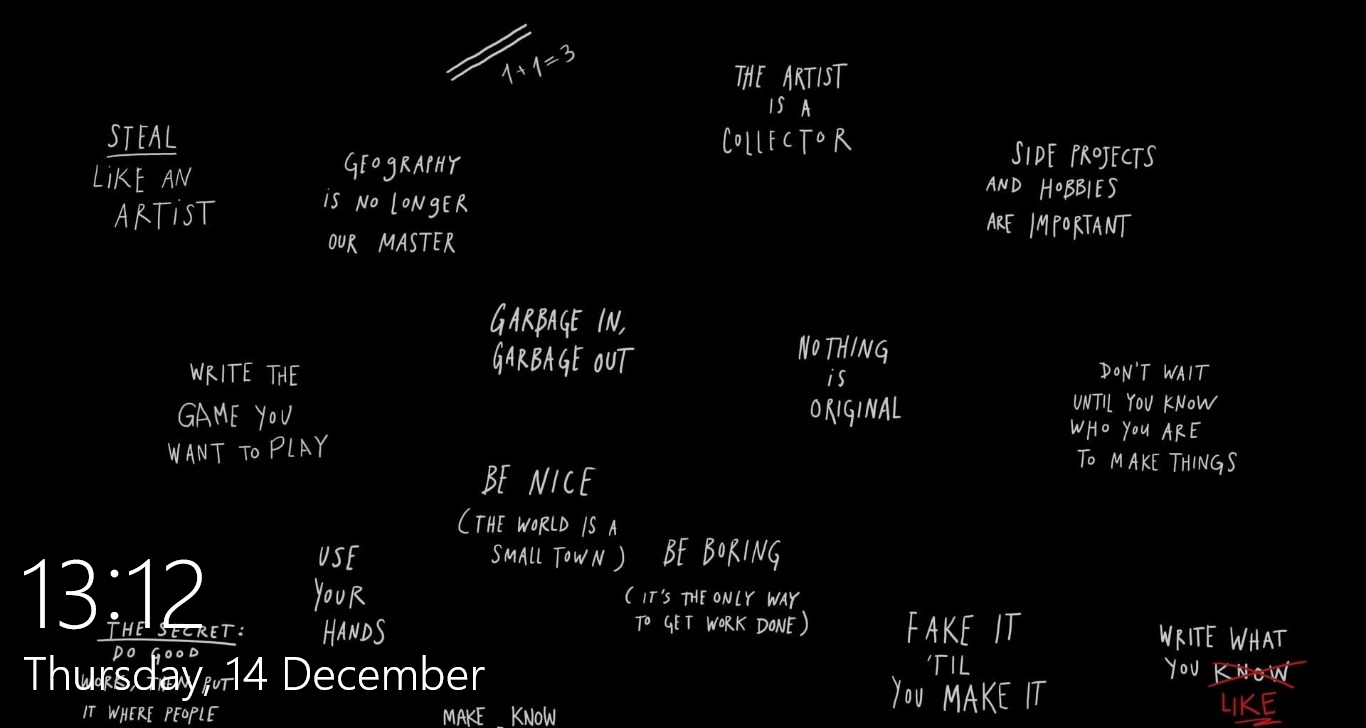 1+1=3
THE ARTIST
IS A
COLLECTOR
STEAL
LIKE AN
ARTIST
GEOGRAPHY
IS NO LONGER
OUR MASTER
SIDE PROJECTS
AND HOBBIES
ARE IMPORTANT
GARBAGE IN,
GARBAGE OUT
NOTHING
IS
ORIGINAL
WRITE THE
GAME YOU
WANT TO PLAY
DON'T WAIT
UNTIL YOU KNOW
WHO YOU ARE
TO MAKE THINGS
BE NICE
(THE WORLD IS A
SMALL TOWN)
BE BORING
(IT'S THE ONLY WAY
TO GET WORK DONE)
USE
YOUR
HANDS
13:12
THE SECRET:
DO GOOD
WORK, THEN PUT
IT WHERE PEOPLE
Thursday, 14 December
FAKE IT
'TIL
YOU MAKE IT
WRITE WHAT
YOU KNOW
LIKE
MAKE KNOW